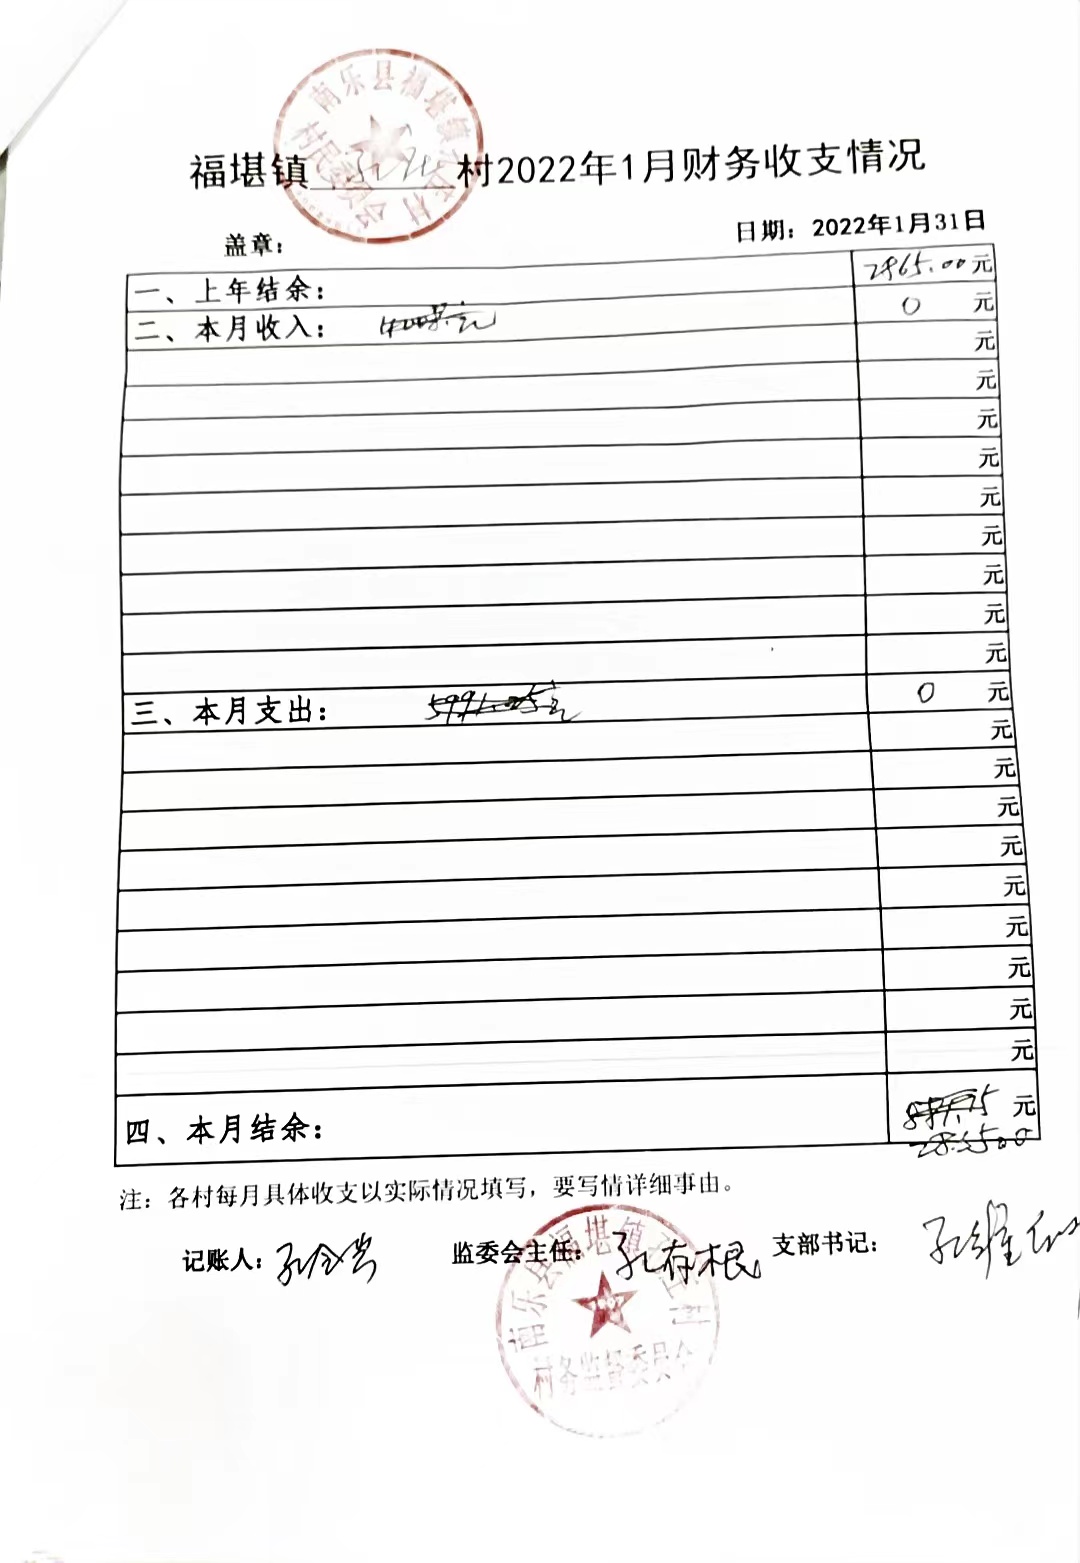 南乐县福堪镇
村民委员会
福堪镇 村2022年1月财务收支情况
盖章： 日期：2022年1月31日
一、上年结余： 2865.00元
二、本月收入： 0 元
元
元
元
元
元
元
元
元
元
三、本月支出： 0 元
元
元
元
元
元
元
元
元
元
四、本月结余： 元
注：各村每月具体收支以实际情况填写，要写情详细事由。
记账人： 监委会主任：孔存根 支部书记：
南乐县福堪镇 村
村务监督委员会